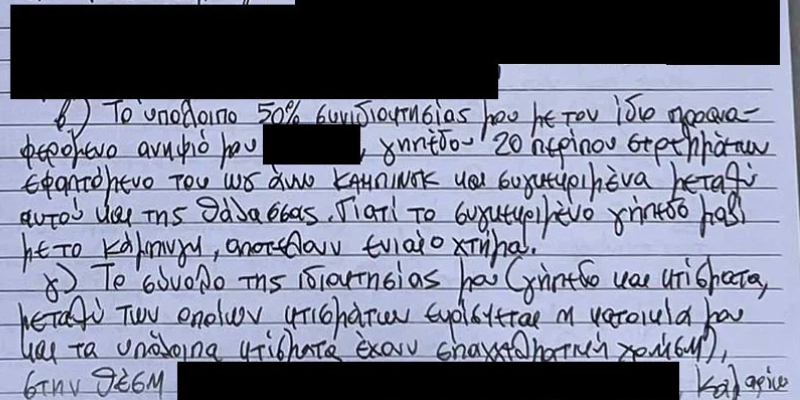 β) Το υπόλοιπο 50% συνιδιοκτησίας μου με τον ίδιο προανα-
φερόμενο ανηψιό μου , γηπέδου 20 περίπου στρεμμάτων
εφαπτόμενο του ως άνω ΚΑΜΠΙΝΓΚ και συγκεκριμένα μεταξύ
αυτού και της θάλασσας. Γιατί το συγκεκριμένο γήπεδο μαζί
με το κάμπινγκ, αποτελούν ενιαίο κτήμα.
γ) Το σύνολο της ιδιοκτησίας μου (γήπεδο και κτίσματα,
μεταξύ των οποίων κτισμάτων ευρίσκεται η κατοικία μου
και τα υπόλοιπα κτίσματα έχουν επαγγελματική χρήση),
στην θέση ,